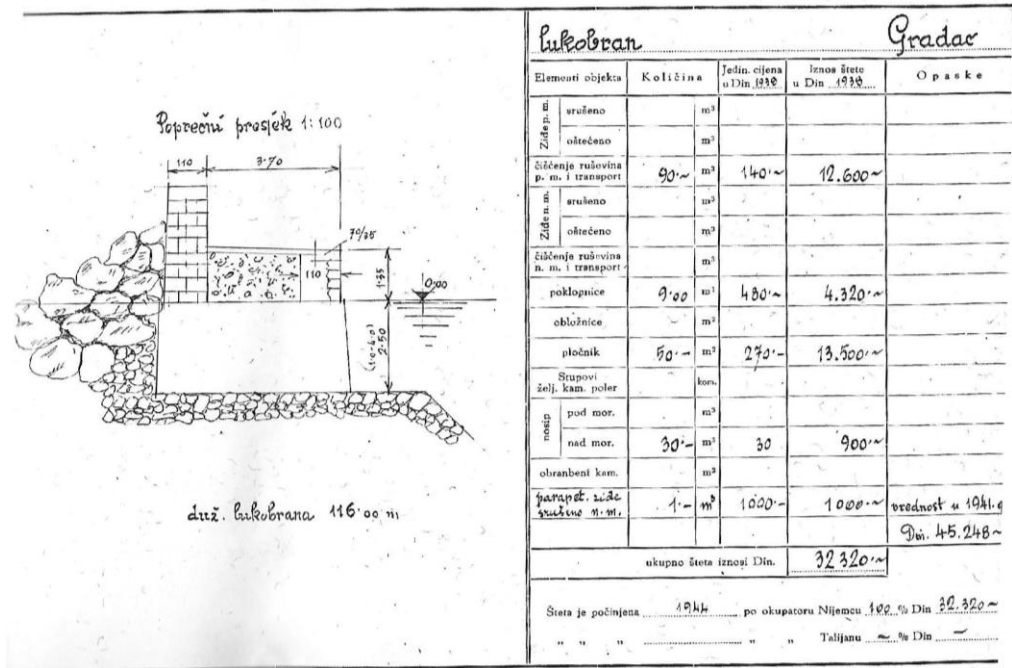 Poprečni presjek 1:100
110
3·70
70/35
110
1·35
0,00
(1·0-4·0)
2·50
duž. lukobrana 116·00 m
lukobran Gradac
Elementi objekta Količina Jedin. cijena u Din 1938 Iznos štete u Din 1938 Opaske
Ziđe p. m. srušeno m³
oštećeno m³
čišćenje ruševina p. m. i transport 90·~ m³ 140·~ 12.600~
Ziđe n. m. srušeno m³
oštećeno m³
čišćenje ruševina n. m. i transport m³
poklopnice 9·00 m³ 480·~ 4.320·~
obložnice m³
pločnik 50·- m³ 270·- 13.500·~
Stupovi želj. kam. poler kom.
nosip pod mor. m³
nad mor. 30·- m³ 30 900·~
obranbeni kam. m³
parapet. ziđe srušeno n.m. 1·- m³ 1000·- 1000·~ vrednost u 1941.g
Din. 45.248~
ukupno šteta iznosi Din. 32320·~
Šteta je počinjena 1944 po okupatoru Nijemcu 100 % Din 32.320~
" " " " " Talijanu ~ % Din ~